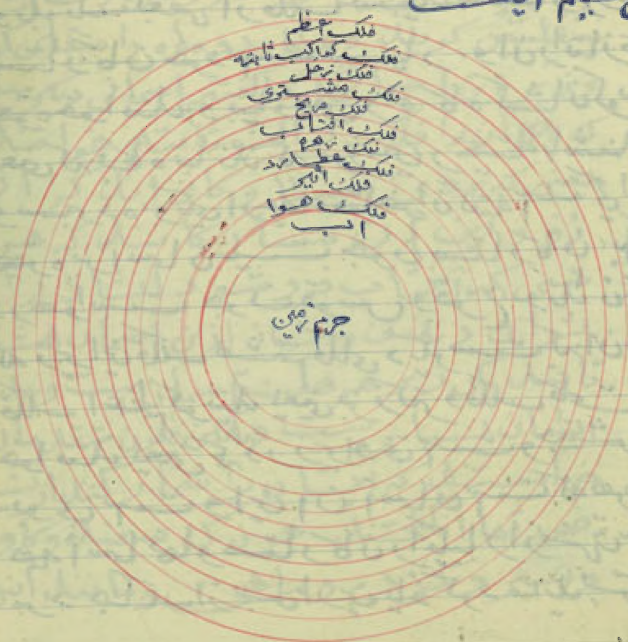 فلك اعظم
فلك كواكب ثابته
فلك زحل
فلك مشتری
فلك مریخ
فلك افتاب
فلك زهره
فلك عطارد
فلك اثیر
فلك هوا
اب
جرم زمین